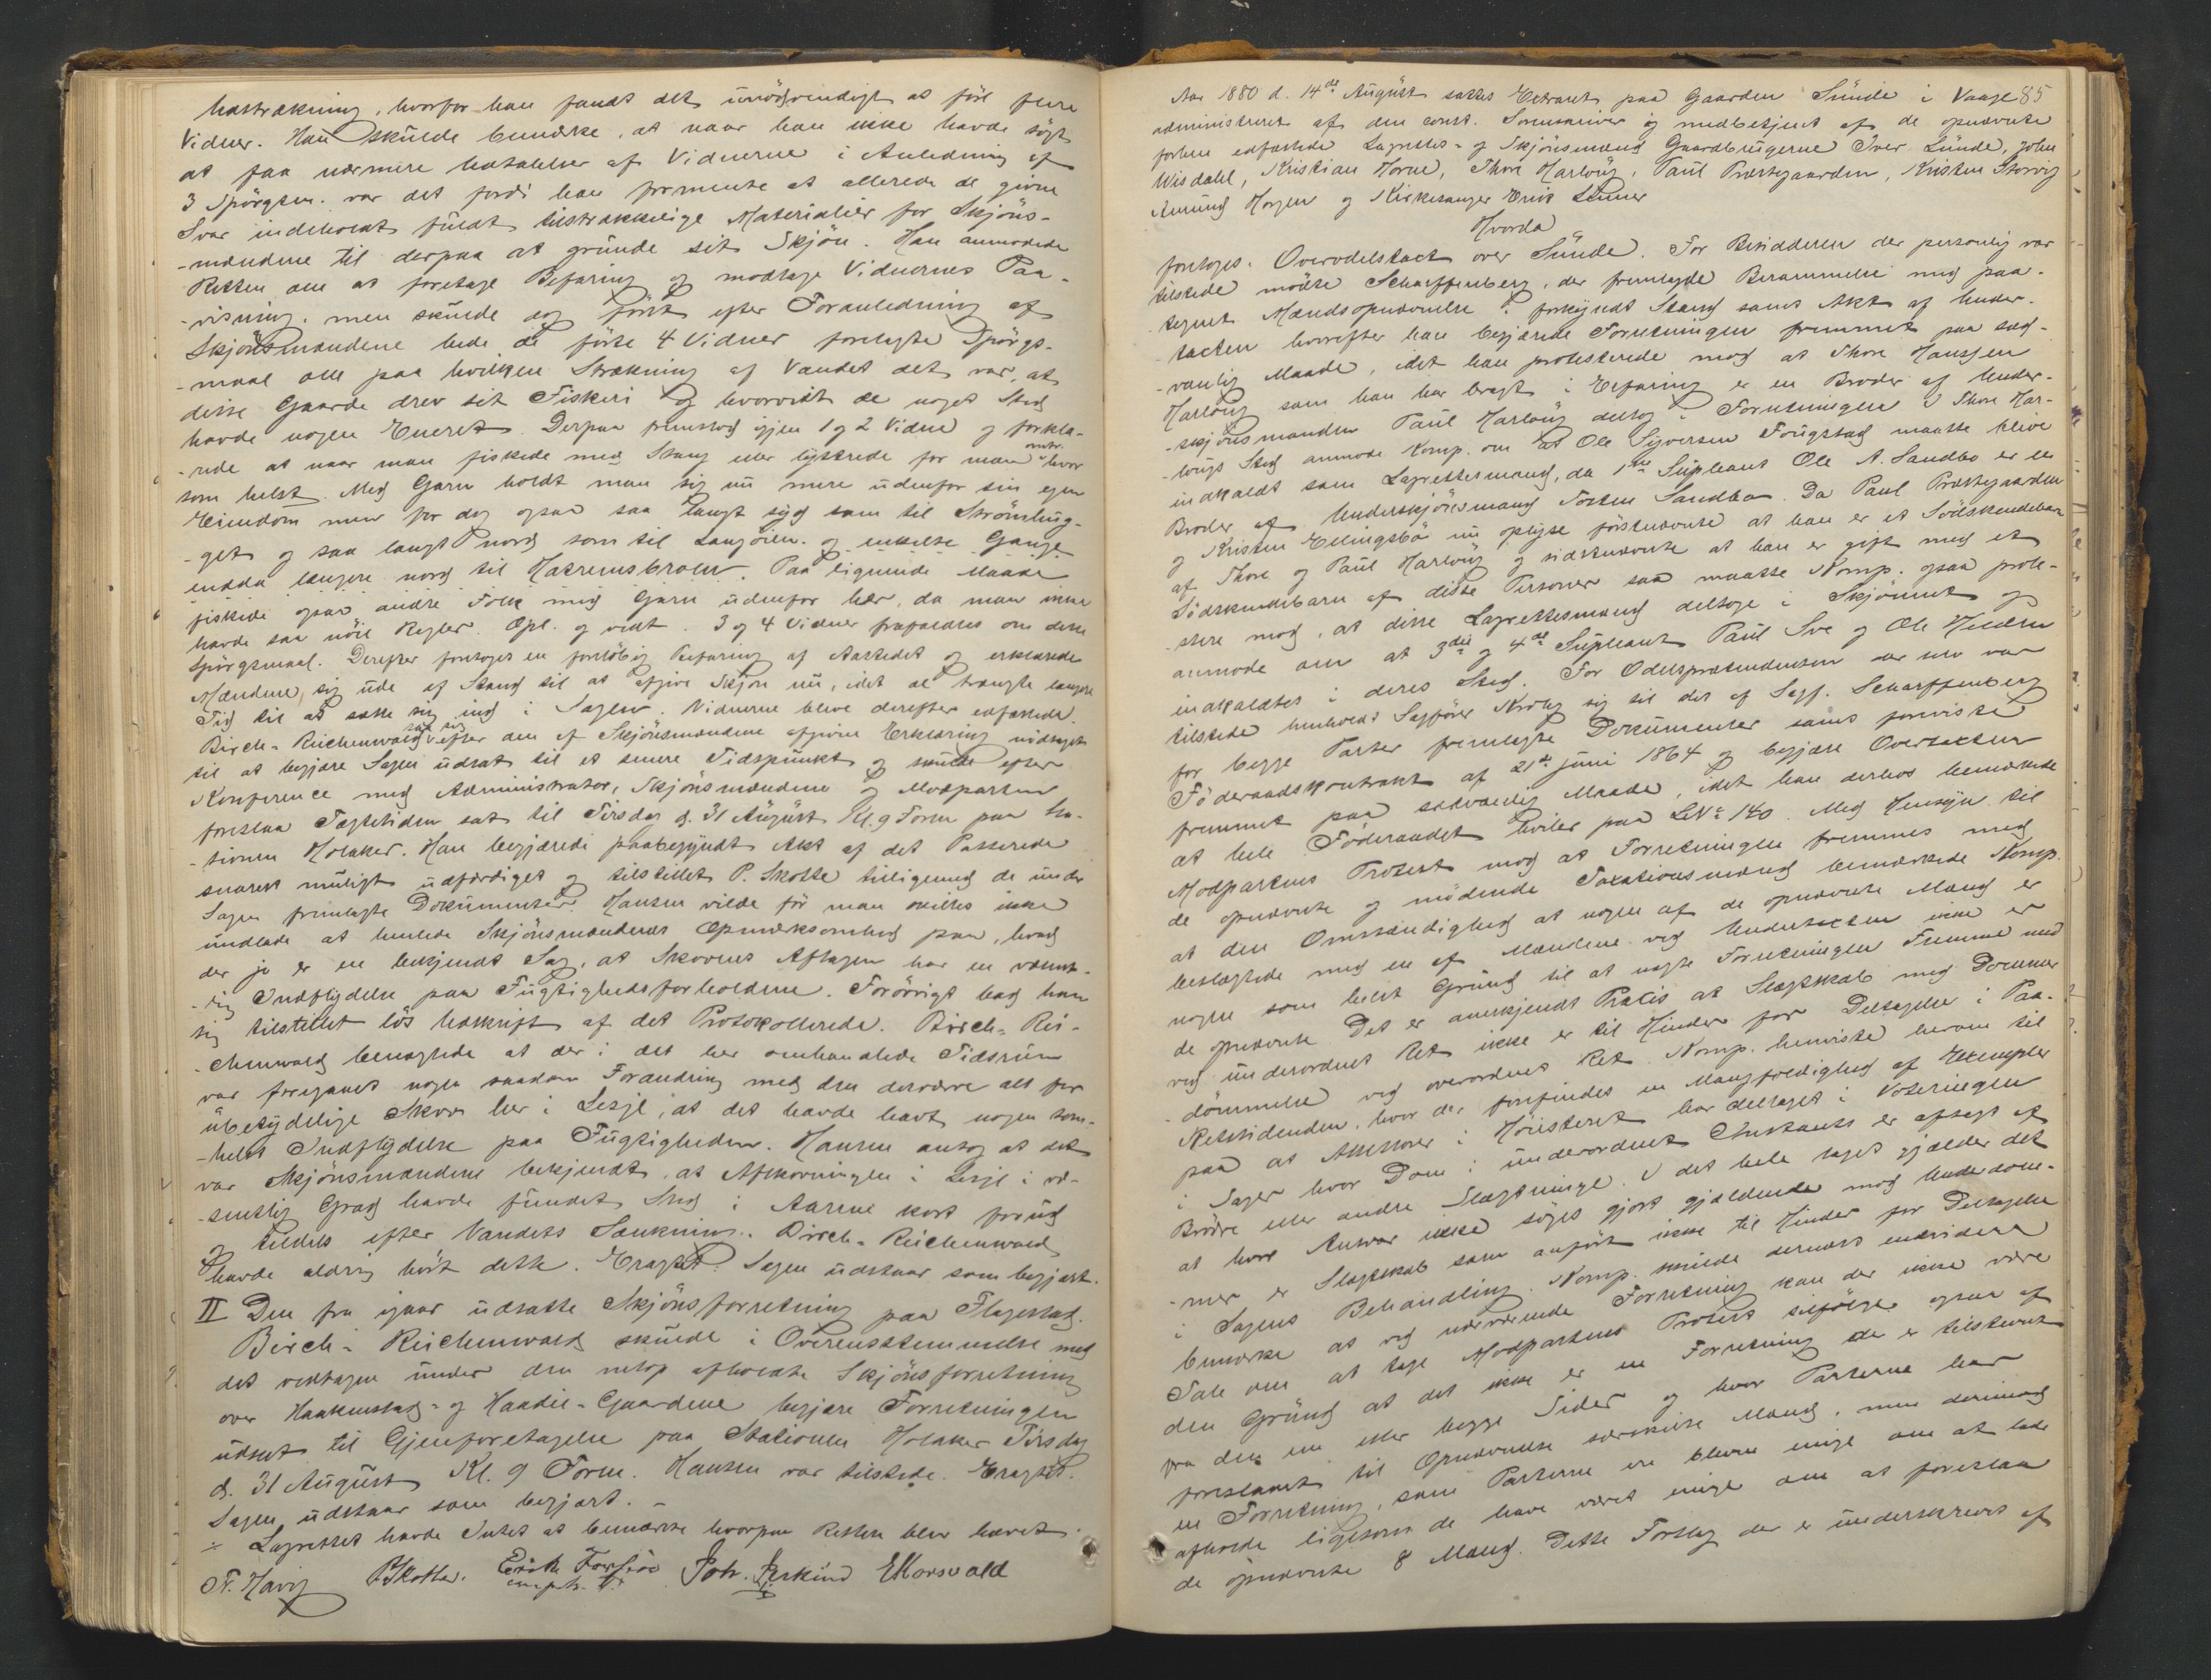 hastrækning, hvorfor han fandt det unödvendigt at före flere
Vidner. Han skulde bemærke, at naar han ikke havde sögt
at faa nærmere Udtalelser af Vidnerne i Anledning af
3 Spörgsm. var det fordi han formente at allerede de givne
Svar indeholdt fuldt tilstrækkelige Materialier for Skjöns-
-mændene til derpaa at grunde sit Skjön. Han anmodede
Retten om at foretage Befaring og modtage Vidnernes Paa-
-visning. men skulde dog först efter Foranledning af
Skjönsmændene bede de förte 4 Vidner forelagte Spörgs-
-maal om paa hvilken Strækning af Vandet det var, at
disse Gaarde drev sit Fiskeri og hvorvidt de noget Sted
havde nogen Eneret. Derpaa fremstod igjen 1 og 2 Vidne og forkla-
-rede at naar man fiskede med Stang eller lystrede for man omtr. hvor
som helst. Med Garn holdt man sig nu mere udenfor sin egen
Eiendom men for dog ogsaa saa langt syd som til Strömhug-
-get og saa langt nord som til Langöien. og enkelte Gange
endda længere nord til Hatremsbroen. Paa lignende Maade
fiskede ogsaa andre Folk med Garn udenfor her, da man ikke
havde saa nöie Regler. Opl. og vedt. 3 og 4 Vidner frafaldtes om dette
Spörgsmaal. Derefter foretoges en forelöbig Befaring af Aastedet og erklærede
Mændene sig ude af Stand til at afgive Skjön nu, idet de trængte længere
Tid til at sætte sig ind i Sagen. Vidnerne bleve derefter edfæstede.
Birch-Reichenwald saa sig efter den af Skjönsmændene afgivne Erklæring nödsaget
til at begjære Sagen udsat til et senere Tidspunkt og skulde efter
Konference med Administrator, Skjönsmændene og Modparten
foreslaa Tægtetiden sat til Tirsdag d. 31 August Kl. 9 Form paa Sta-
-tionen Holaker. Han begjærede paabegyndt Akt af det Passerede
snarest muligt udfærdiget og tilstillet P. Skotte tilligemed de under
Sagen fremlagte Dokumenter. Hansen vilde för man skiltes ikke
undlade at henlede Skjönsmændenes Opmærksomhed paa, hvad
der jo er en bekjendt Sag, at Skovens Aftagen har en væsent-
-lig Indflydelse paa Fugtighedsforholdene. Forövrigt bad han
sig tilstillet lös Udskrift af det Protokollerede. Birch-Rei-
-chenwald benægtede at der i det her omhandlede Tidsrum
var foregaaet nogen saadan Forandring med den desværre alt for
ubetydelige Skov her i Lesje, at det havde havt nogen som-
-helst Indflydelse paa Fugtigheden. Hansen antog at det
var Skjönsmændene bekjendt, at Afskovningen i Lesje i væ-
-sentlig Grad havde fundet Sted i Aarene kort forud
og tildels efter Vandets Sænkning. Birch-Reichenwald
havde aldrig hört dette. Eragtet. Sagen udstaar som begjært.
II Den fra igaar udsatte Skjönsforretning paa Flagestad.
Birch-Reichenwald skulde i Overensstemmelse med
det vedtagne under den netop afholdte Skjönsforretning
over Haakenstad- og Haadie-Gaardene begjære Forretningen
udsat til Gjenforetagelse paa Stationen Holaker Tirsdag
d. 31 August Kl. 9 Form. Hansen var tilstede. Eragtet.
Sagen udstaar som begjært. -
÷ Lagrettet havde Intet at bemærke hvorpaa Retten blev hævet.
Fr. Havig PSkotte. Erik Joh. EKorsvold
Aar 1880 d. 14de August sattes Extraret paa Gaarden Sunde i Vaage 85
administreret af den const. Sorenskriver og medbetjent af de opnævnte
forhen edfæstede Lagrettes- og Skjönsmænd Gaardbrugerne Iver Sunde, John
Wisdahl, Kristian Horne, Thore Harlöug, Paul Præstegaarden, Kristen Storvig
Amund Horgen og Kirkesanger Erik Sunne
Hvorda
foretoges. Overodelstaxt over Sunde. For Besidderen der personlig var
tilstede mödte Scharffenberg, der fremlagde Berammelse med paa-
-tegnet Mændsopnævnelse i forkyndt Stand samt Akt af Under-
-taxten hvorefter han begjærede Forretningen fremmet paa sæd-
-vanlig Maade, idet han protesterede mod at Thore Hansen
Harlöug som han har bragt i Erfaring er en Broder af Under-
-skjönsmanden Paul Harlöug deltog i Forretningen. I Thore Har-
-lougs Sted anmode Komp. om at Ole Syversen Fougstad maatte blive
indkaldt som Lagrettesmand, da 1ste Supleant Ole A. Sandbo er en
Broder af Underskjönsmand Torsten Sandbo. Da Paul Præstegaarden
og Kristen Ellingsbö nu oplyse förstnævnte at han er et Södskendebarn
af Thore og Paul Harlöug og sidstnævnte at han er gift med et
Södskendebarn af disse Personer saa maatte Komp. ogsaa prote-
-stere mod, at disse Lagrettesmænd deltoge i Skjönnet og
anmode om at 3die og 4de Supleant Paul Sve og Ole
indkaldtes i deres Sted. For Odelsprætendenten der selv var
tilstede henholdt Sagförer Krog sig til det af Sagf. Scharffenberg
for begge Parter fremlagte Dokumenter samt foreviste
Föderaadskontrakt af 21de juni 1864 og begjære Overtaxten
fremmet paa sædvanlig Maade, idet han derhos bemærkede
at hele Föderaadet hviler paa LN: 140. Med Hensyn til
Modpartens Protest mod at Forretningen fremmes med
de opnævnte og mödende Taxationsmænd bemærkede Komp.
at den Omstændighed at nogen af de opnævnte Mænd er
beslægtede med en af Mændene ved Undertaxten ikke er
nogen som helst Grund til at nægte Forretningen Fremme med
de opnævnte. Det er anerkjendt Praxis at Slægtskab med Dommer
ved underordnet Ret ikke er til Hinder for Deltagelse i Paa-
-dömmelse ved overordnet Ret. Komp. henviste herom til
Retstidenden, hvor der forefindes en Mangfoldighed af Exempler
paa at Assessorer i Höiesteret har deltaget i Voteringen
i Sager hvor Dom i underordnet Instants er afsagt af
Brödre eller andre Slægtninge. I det hele taget gjælder det
at hvor Ansvar ikke söges gjort gjældende mod Underdom-
-mer er Slægtskab som anfört ikke til Hinder for Deltagelse
i Sagens Behandling. Komp. skulde dernæst endvidere
bemærke at ved nærværende Forretning kan der ikke være
Tale om at tage Modpartens Protest tilfölge ogsaa af
den Grund at det ikke er en Forretning der er tilstevnt
fra den ene eller begge Sider og hvor Parterne har
foreslaaet til Opnævnelse særskilte Mænd, men derimod
en Forretning, som Parterne ere blevne enige om at lade
afholde ligesom de have været enige om at foreslaa
de opnævnte 8 Mænd. Dette Forslag der er underskrevet af